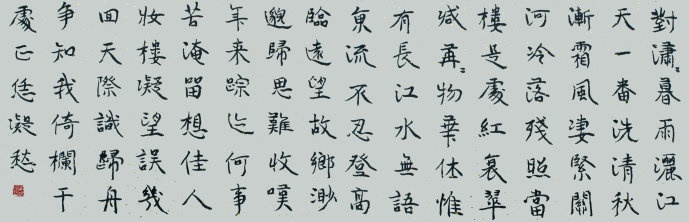 對瀟〻暮雨灑江
天一番洗清秋
漸霜風凄緊關
河冷落殘照當
樓是處紅衰翠
減苒〻物華休惟
有長江水無語
東流不忍登高
臨遠望故鄉渺
邈歸思難收嘆
年来踪迹何事
苦淹留想佳人
妝樓凝望誤幾
回天際識歸舟
爭知我倚欄干
處正恁凝愁